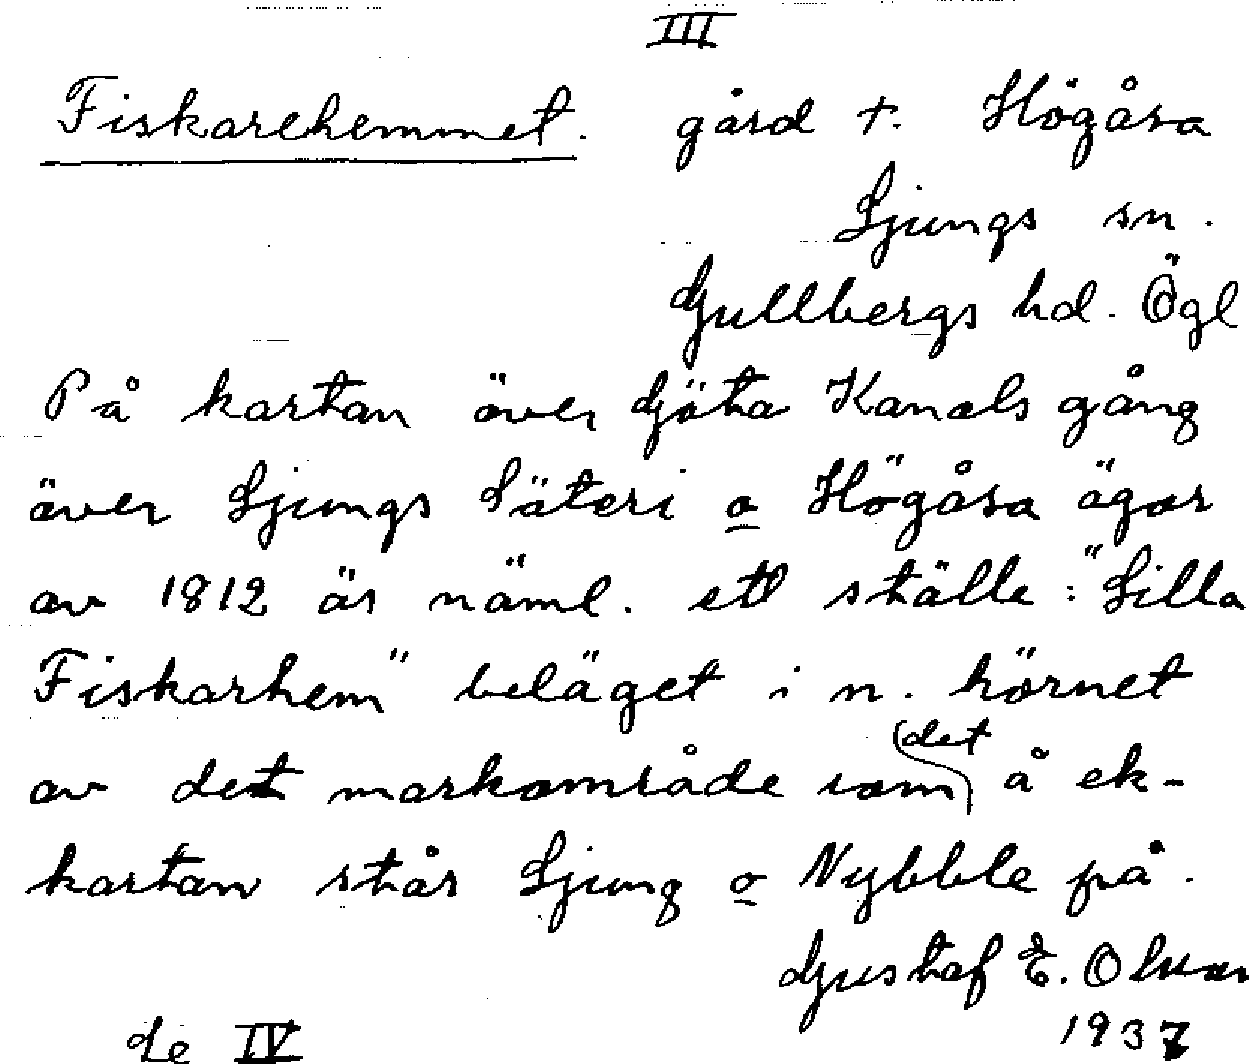 III
Fiskarehemmet. gård t. Högåsa
Ljungs sn.
Gullbergs hd. Ögl
På kartan över Göta Kanals gång
över Ljungs Säteri o Högåsa ägor
av 1812 är näml. ett ställe: "Lilla
Fiskarhem" beläget i n. hörnet
av det markområde som det å ek-
kartan står Ljung o Nybble på.
Gustaf E. Olsson
1937
se IV